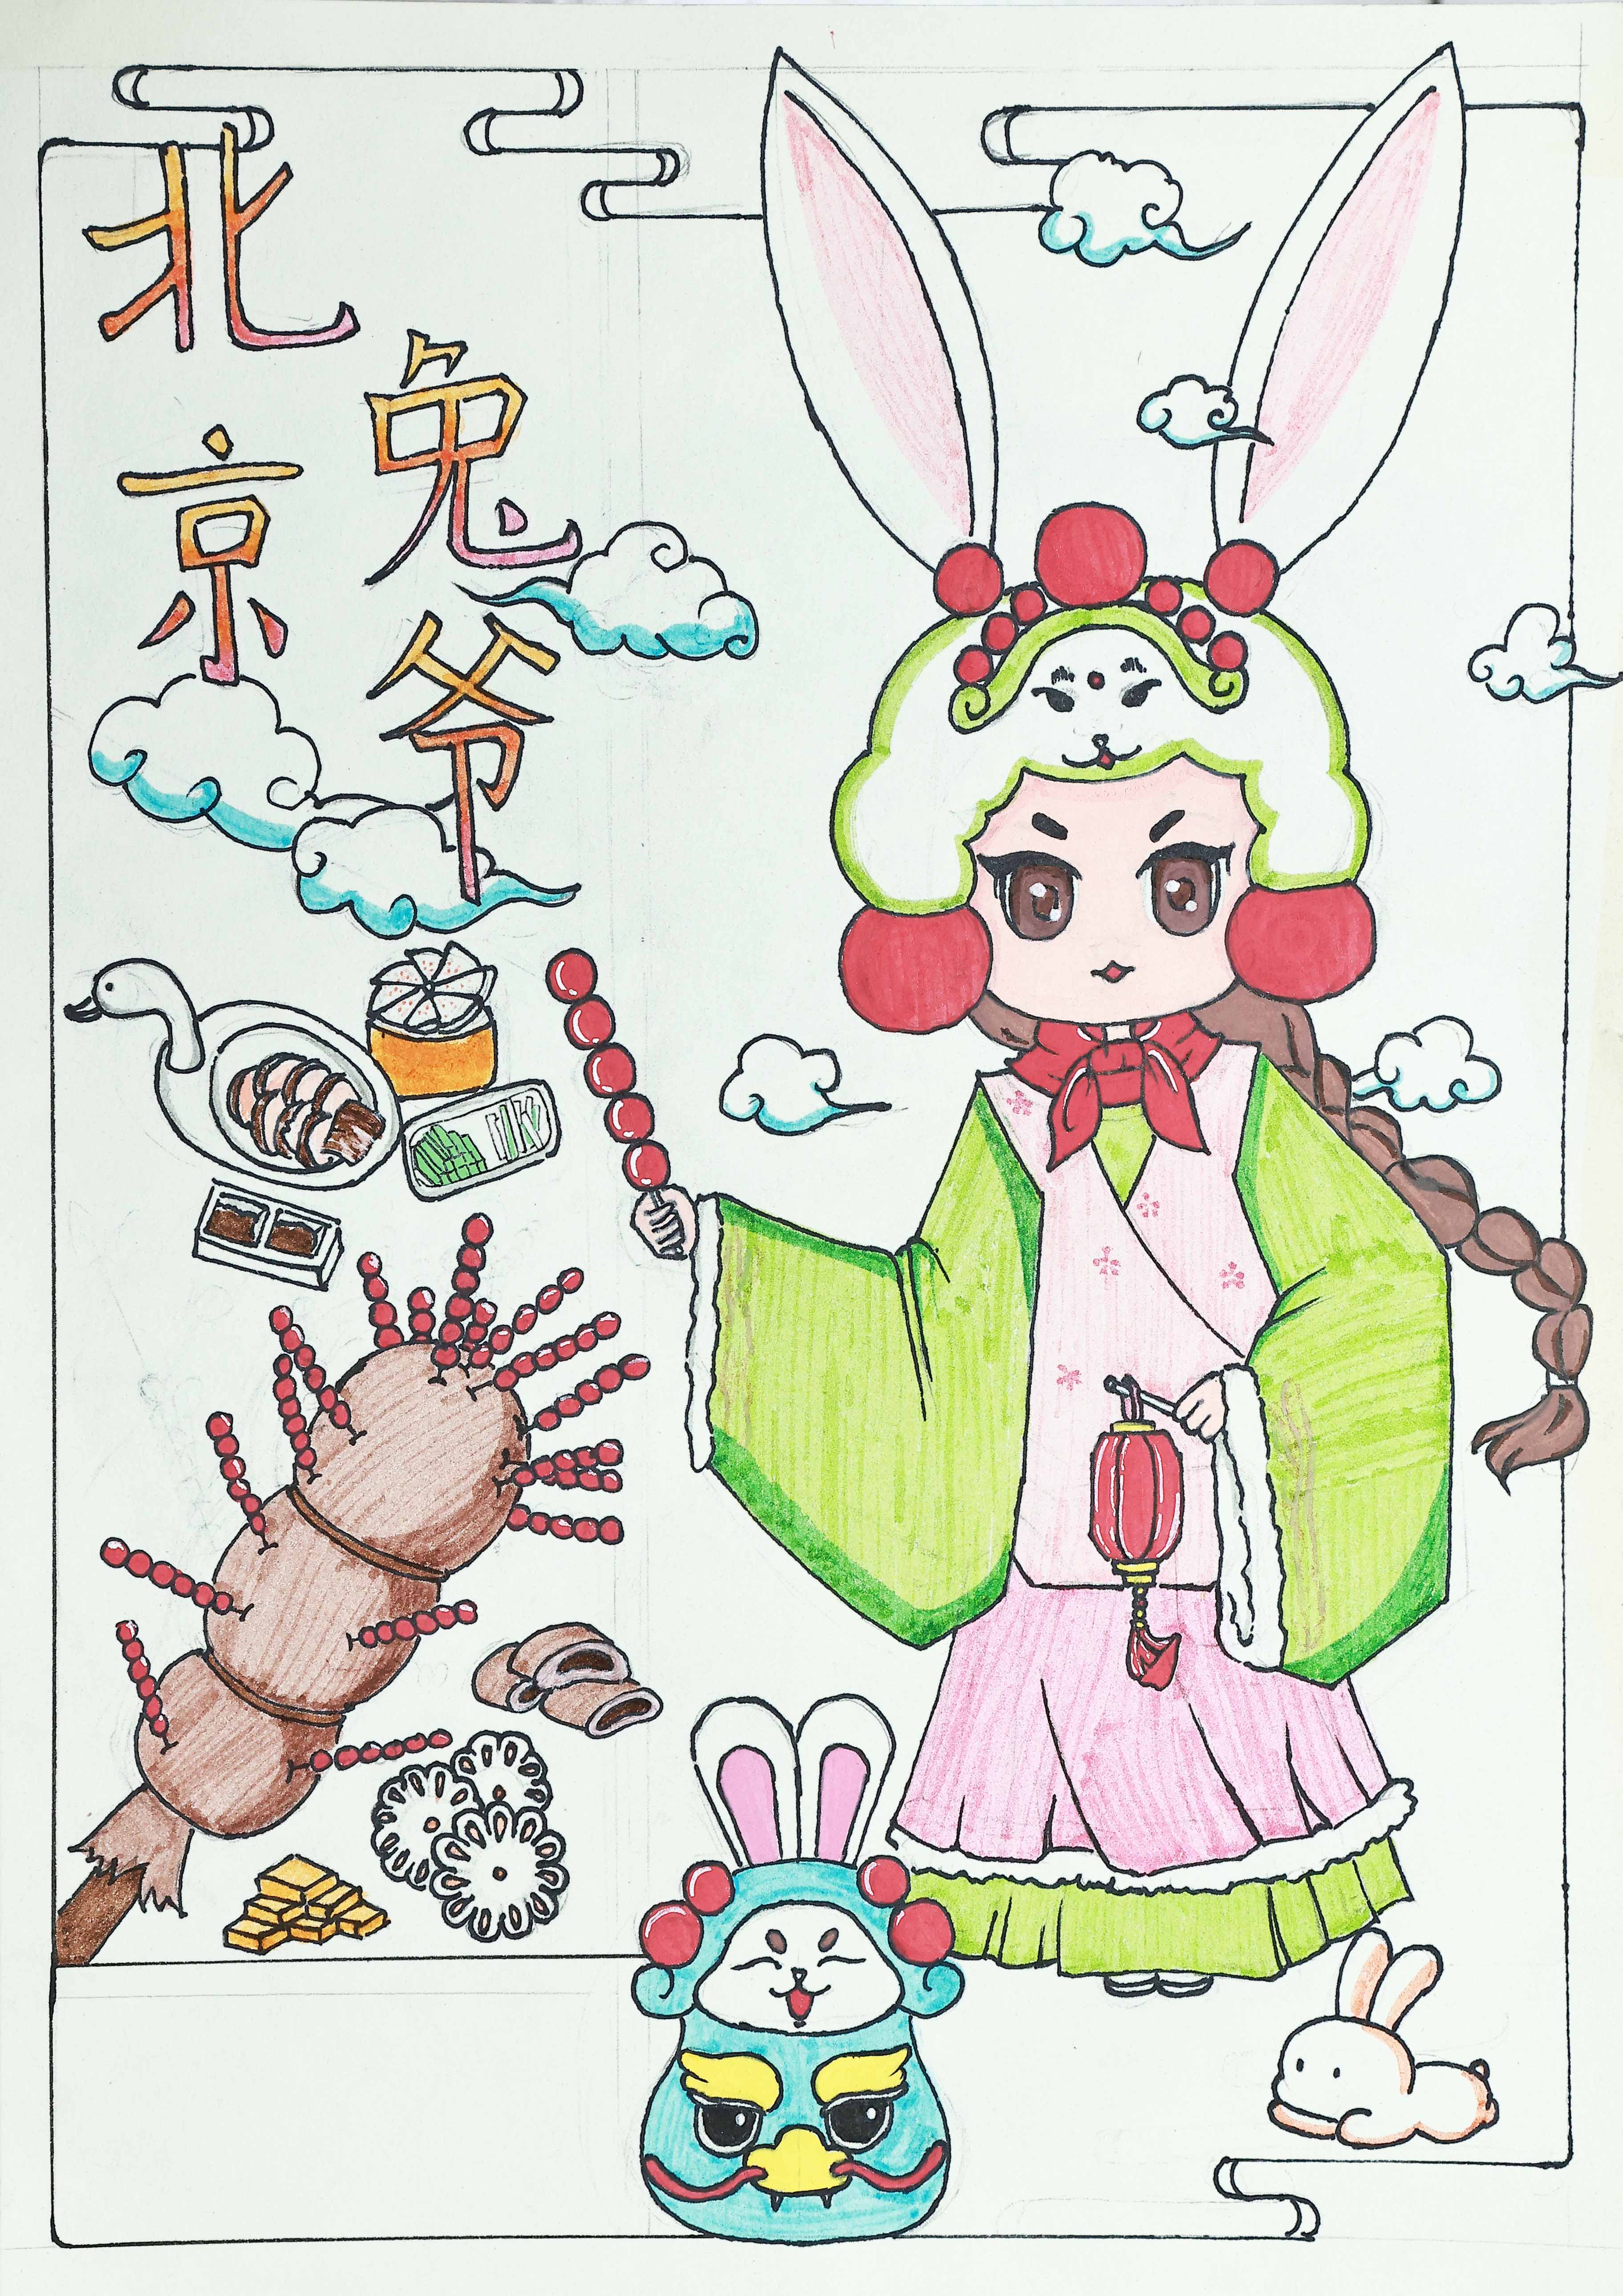 北京
兔爷